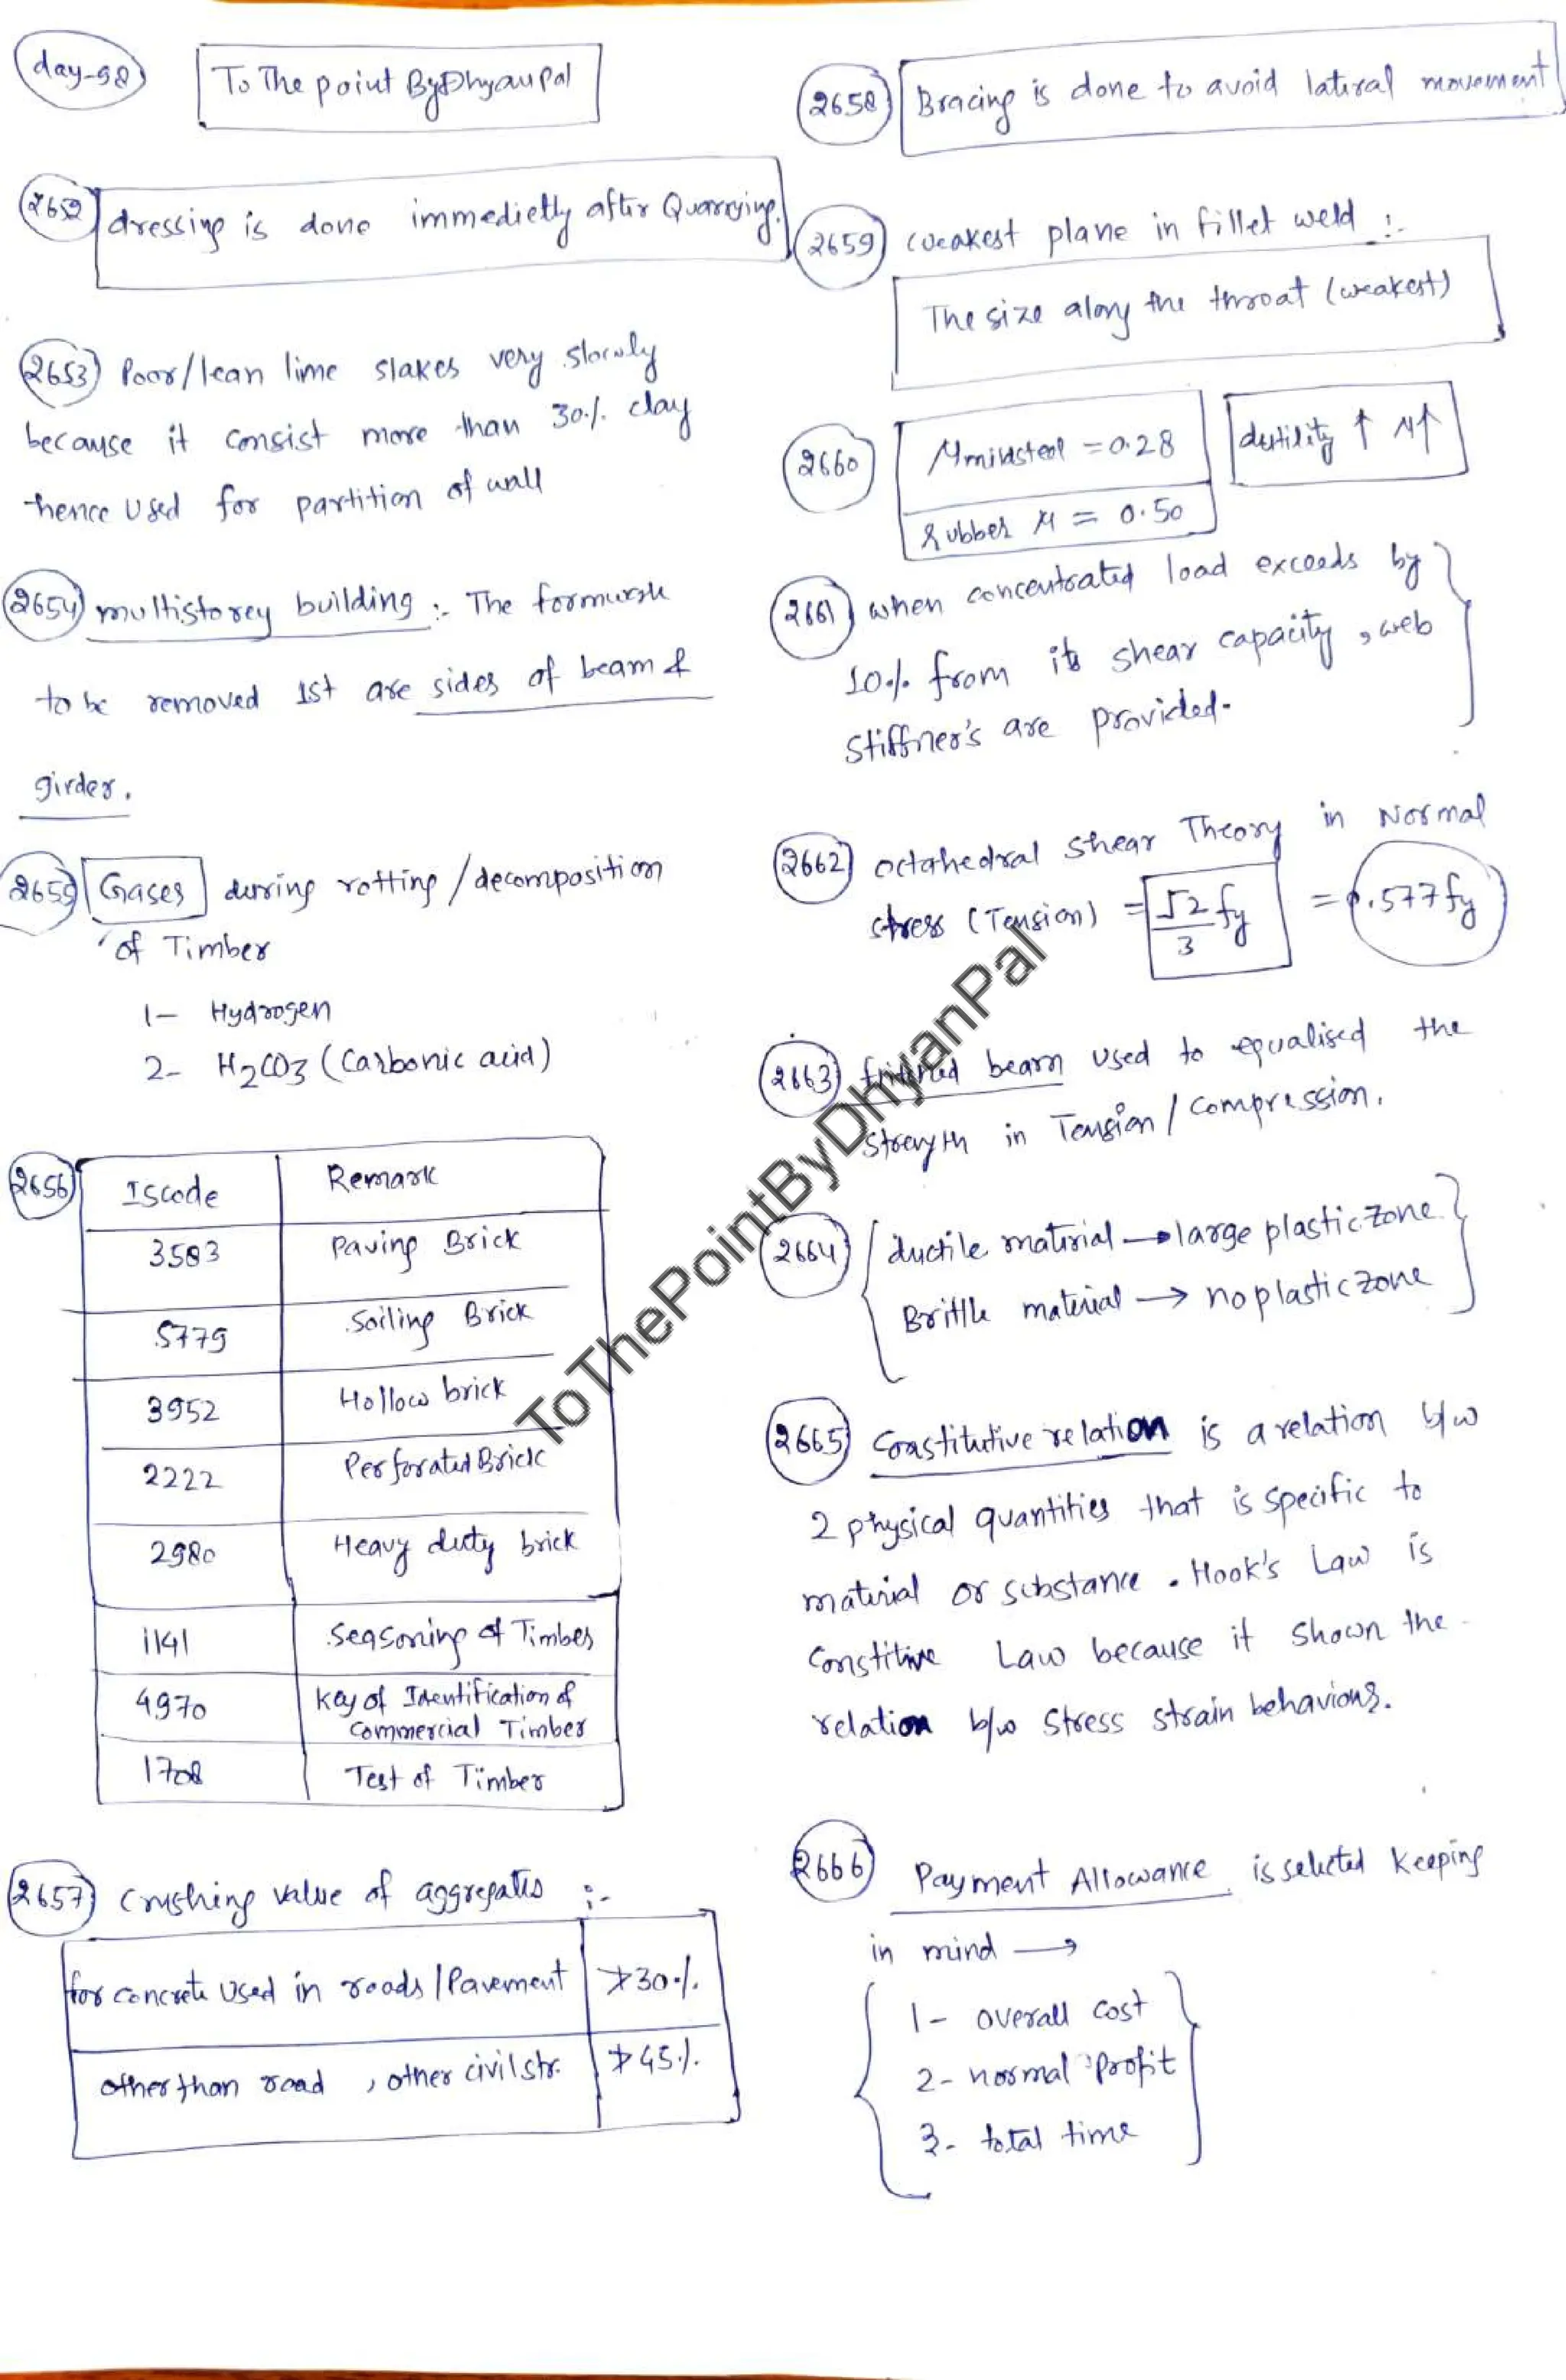 day-98
To The point ByDhyanpal
2652 dressing is done immedietly after Quarrying.
2653 Poor/lean lime slakes very slowly
because it consist more than 30% clay
hence Used for partition of wall
2654 multistorey building :- The formwork
to be removed 1st are sides of beam &
girder.
2655 Gases during rotting / decomposition
of Timber
1- Hydrogen
2- H2CO3 (Carbonic acid)
2656
IScode Remark
3583 Paving Brick
5779 Soiling Brick
3952 Hollow brick
2222 Perforated Brick
2980 Heavy duty brick
1141 Seasoning of Timber
4970 Key of Identification of
Commercial Timber
1708 Test of Timber
2657 Crushing value of aggregates :-
for concrete used in roads / Pavement ≯30%
other than road , other civil str. ≯45%
2658 Bracing is done to avoid lateral movement
2659 weakest plane in fillet weld :-
The size along the throat (weakest)
2660 μmildsteel = 0.28 ductility ↑ μ↑
Rubber μ = 0.50
2661 when concentrated load exceeds by
10% from its shear capacity , web
stiffner's are provided.
2662 octahedral shear Theory in Normal
stress (Tension) = √2/3 fy = 0.577fy
2663 beam used to equalised the
strength in Tension / Compression.
2664 ductile material → large plastic zone
Brittle material → no plastic zone
2665 Constitutive relation is a relation b/w
2 physical quantities that is specific to
material or substance . Hook's Law is
Constitive Law because it shown the
relation b/w stress strain behaviour.
2666 Payment Allowance is selected Keeping
in mind →
1- overall cost
2- normal profit
3- total time
ToThePointByDhyanPal